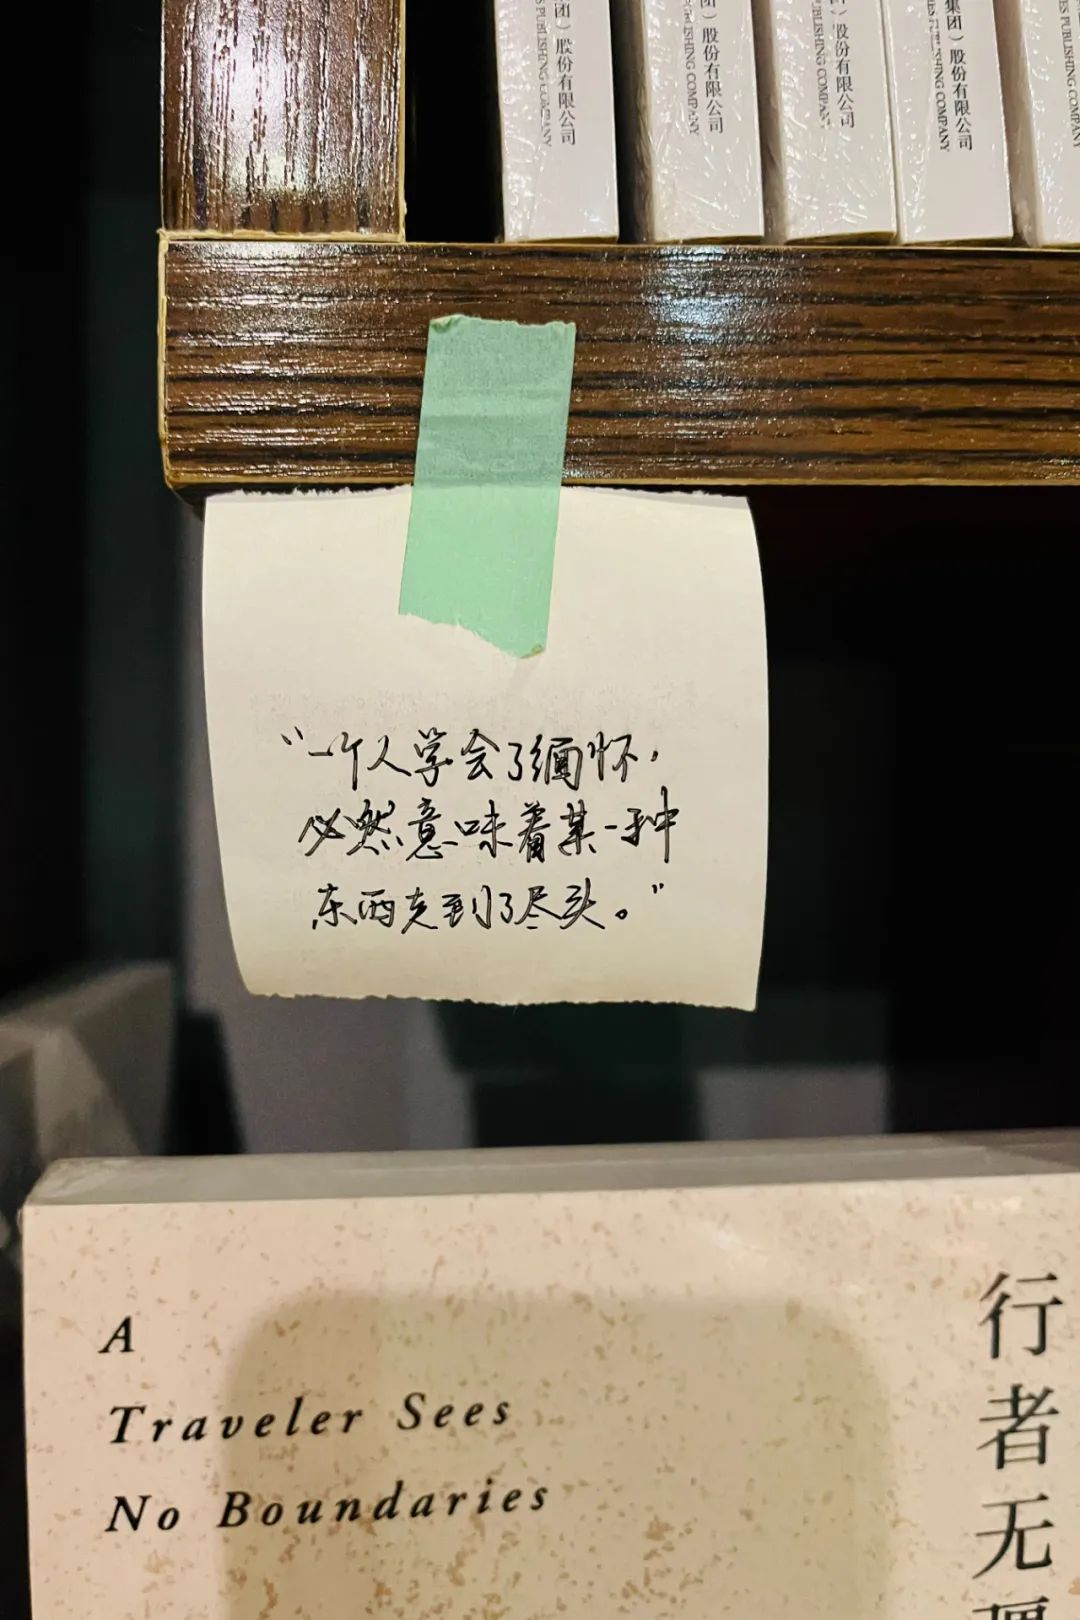 团）股份有限公司
S PUBLISHING COMPANY
团）股份有限公司
PUBLISHING COMPANY
股份有限公司
PUBLISHING COMPANY
集团）股份有限公司
PUBLISHING COMPANY
ES PUBLISHING COMPANY
“一个人学会了缅怀，
必然意味着某一种
东西走到了尽头。”
A
Traveler Sees
No Boundaries
行者无疆